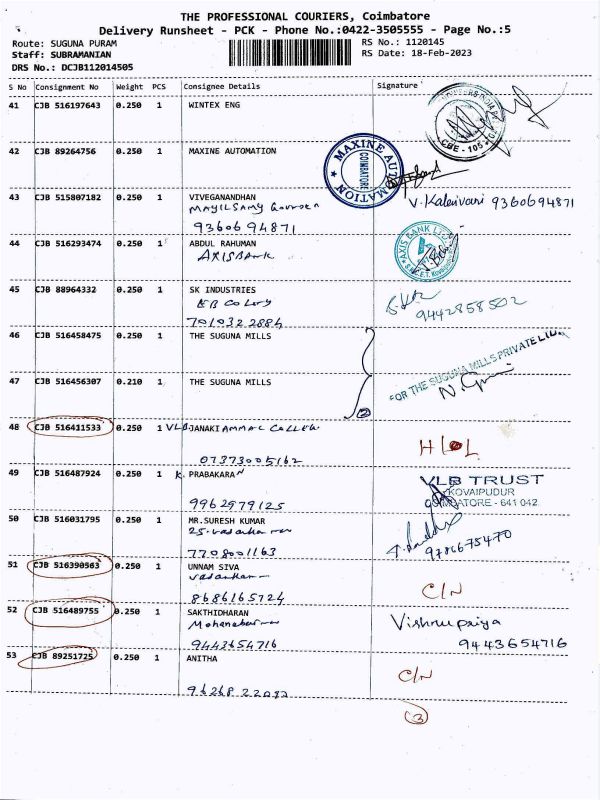 THE PROFESSIONAL COURIERS, Coimbatore
Delivery Runsheet - PCK - Phone No.:0422-3505555 - Page No.:5
Route: SUGUNA PURAM
RS No.: 1120145
Staff: SUBRAMANIAN
RS Date: 18-Feb-2023
DRS No.: DCJB112014505
S No Consignment No Weight PCS Consignee Details Signature
41 CJB 516197643 0.250 1 WINTEX ENG
CBE - 105
42 CJB 89264756 0.250 1 MAXINE AUTOMATION
MAXINE AUTOMATION
COIMBATORE
43 CJB 515807182 0.250 1 VIVEGANANDHAN
MAYILSAMY Gounder
9360694871
V. Kalaivani 9360694871
44 CJB 516293474 0.250 1 ABDUL RAHUMAN
AXIS BANK
AXIS BANK LTD
45 CJB 88964332 0.250 1 SK INDUSTRIES
EB Colony
7010322884
9442858502
46 CJB 516458475 0.250 1 THE SUGUNA MILLS
47 CJB 516456307 0.210 1 THE SUGUNA MILLS
2
FOR THE SUGUNA MILLS PRIVATE LTD
48 CJB 516411533 0.250 1 VLB JANAKI AMMAL COLLEGE
07373005162
49 CJB 516487924 0.250 1 K. PRABAKARAN
9962979125
VLB TRUST
KOVAIPUDUR
COIMBATORE - 641 042
50 CJB 516031795 0.250 1 MR.SURESH KUMAR
7708001163
9786675470
51 CJB 516390563 0.250 1 UNNAM SIVA
8686165724
C/N
52 CJB 516489755 0.250 1 SAKTHIDHARAN
9443654716
Vishnupriya
9443654716
53 CJB 89251725 0.250 1 ANITHA
C/N
3